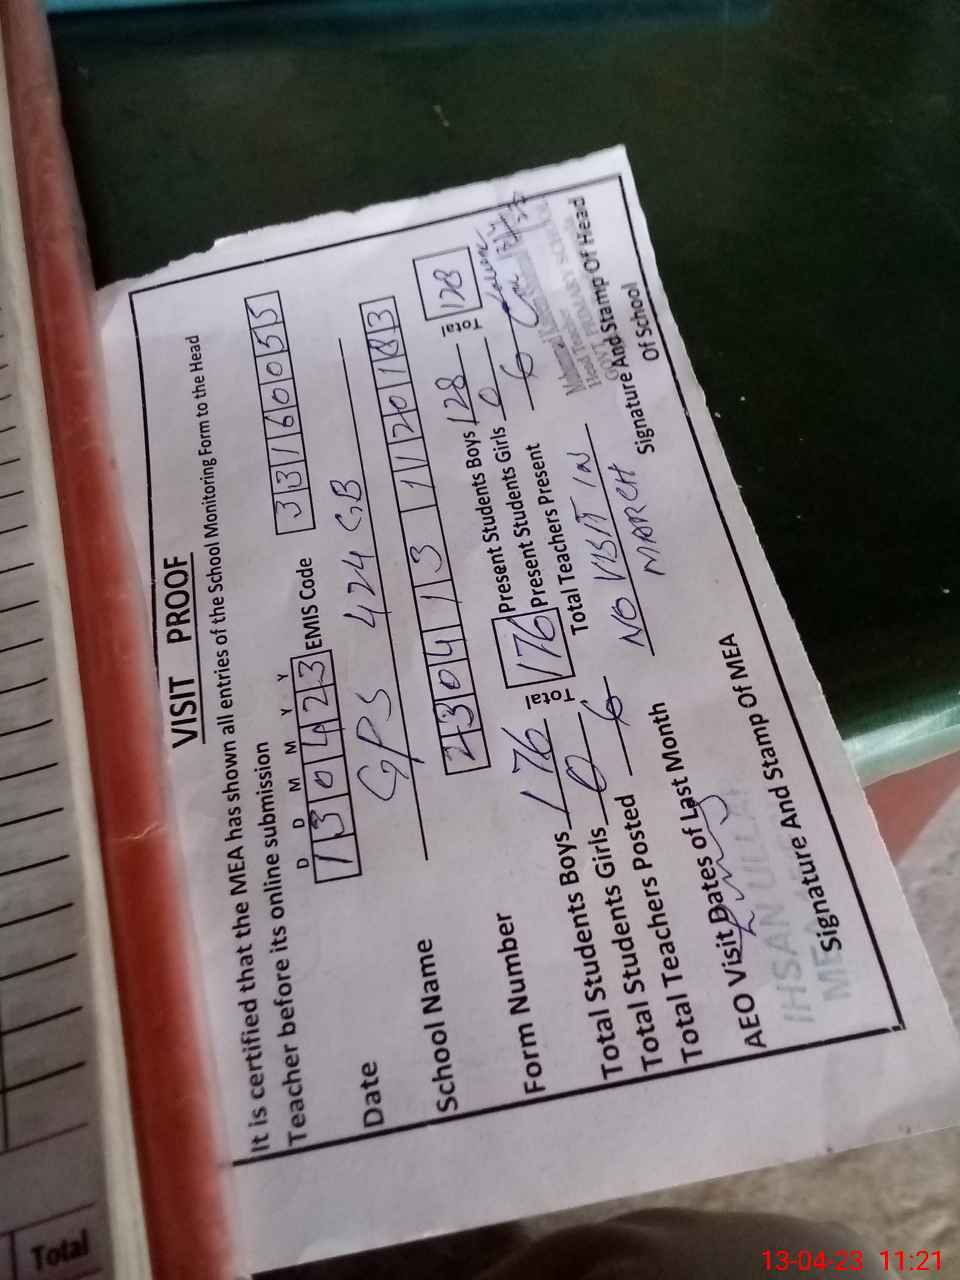 VISIT PROOF
It is certified that the MEA has shown all entries of the School Monitoring Form to the Head
Teacher before its online submission
D D M M Y Y
Date 130423 EMIS Code 33160055
School Name GPS 424 GB
Form Number 230413 1120183
Total Students Boys 176 Total 176 Present Students Boys 128 Total 128
Total Students Girls 0 Present Students Girls 0
Total Teachers Posted 6 Total Teachers Present 6
AEO Visit Dates of Last Month NO VISIT IN
MARCH
IHSAN ULLAH
MEA
Signature And Stamp Of MEA
Head Teacher
GOVT. PRIMARY SCHOOL
Signature And Stamp Of Head
Of School
Total
13-04-23 11:21